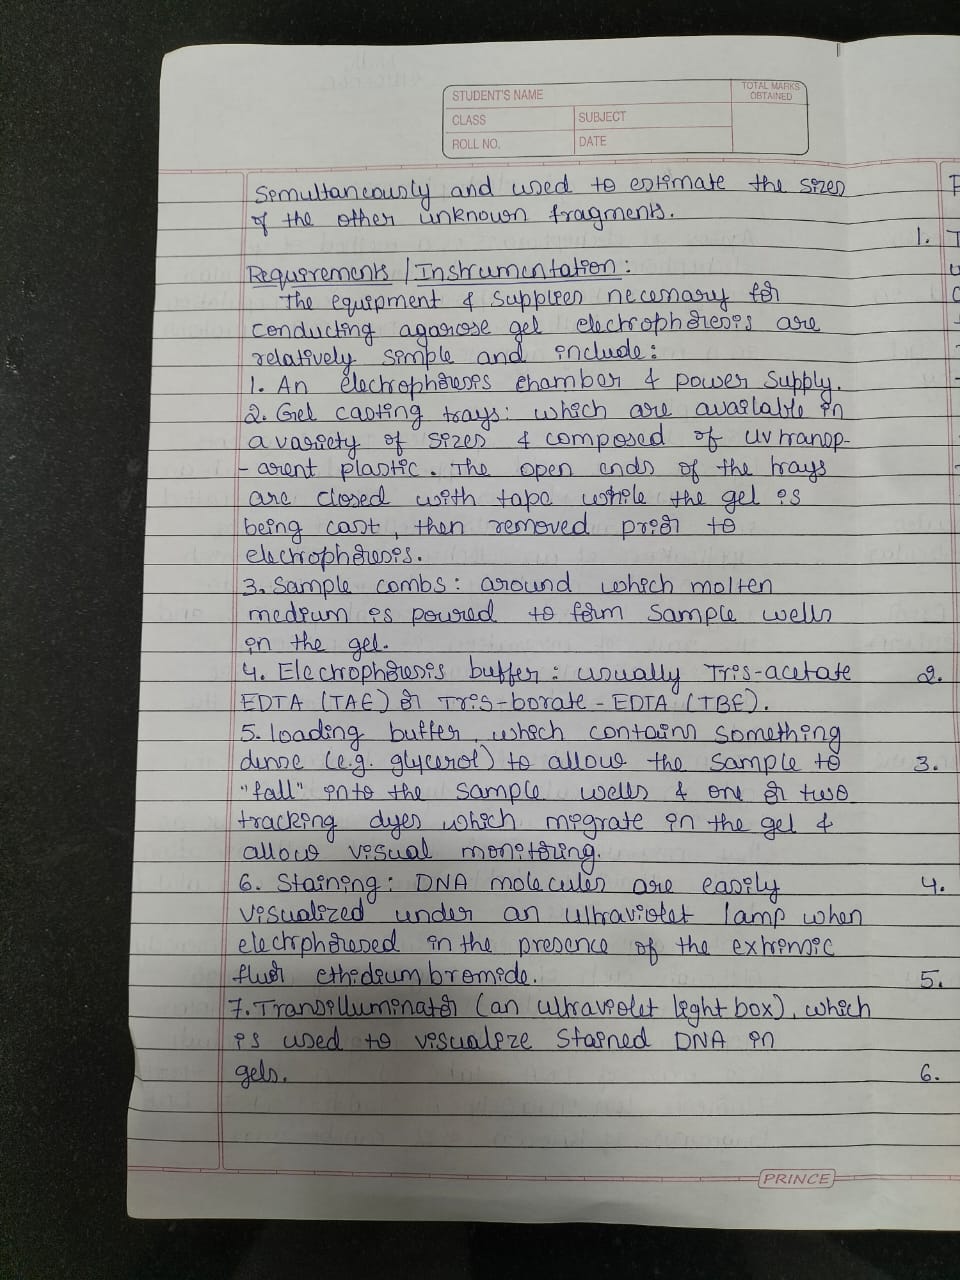 STUDENT'S NAME
TOTAL MARKS OBTAINED
CLASS
SUBJECT
ROLL NO.
DATE
Simultaneously and used to estimate the sizes
of the other unknown fragments.
Requirements / Instrumentation :
The equipment & supplies necessary for
conducting agarose gel electrophoresis are
relatively simple and include :
1. An electrophoresis chamber & power supply.
2. Gel casting trays : which are available in
a variety of sizes & composed of UV transp-
- arent plastic. The open ends of the trays
are closed with tape while the gel is
being cast, then removed prior to
electrophoresis.
3. Sample combs : around which molten
medium is poured to form sample wells
in the gel.
4. Electrophoresis buffer : usually Tris-acetate
EDTA (TAE) or Tris-borate - EDTA (TBE).
5. Loading buffer, which contains something
dense (e.g. glycerol) to allow the sample to
"fall" into the sample wells & one or two
tracking dyes which migrate in the gel &
allow visual monitoring.
6. Staining : DNA molecules are easily
visualized under an ultraviolet lamp when
electrphoresed in the presence of the extrinsic
fluor ethidium bromide.
7. Transilluminator (an ultraviolet light box), which
is used to visualize stained DNA in
gels.
1.
2.
3.
4.
5.
6.
PRINCE